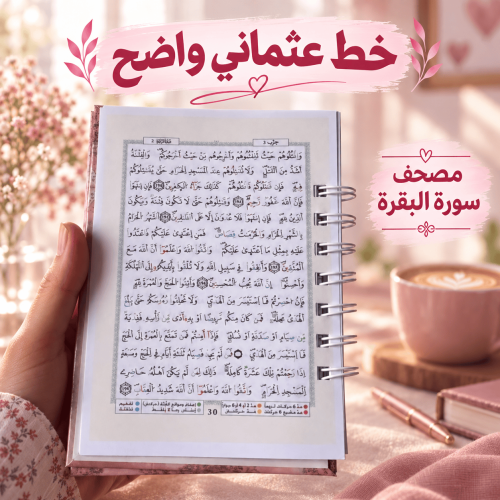 خط عثماني واضح
مصحف
سورة البقرة
وَاقْتُلُوهُمْ حَيْثُ ثَقِفْتُمُوهُمْ وَأَخْرِجُوهُمْ مِنْ حَيْثُ أَخْرَجُوكُمْ وَالْفِتْنَةُ
أَشَدُّ مِنَ الْقَتْلِ وَلَا تُقَاتِلُوهُمْ عِنْدَ الْمَسْجِدِ الْحَرَامِ حَتَّى يُقَاتِلُوكُمْ
فِيهِ فَإِنْ قَاتَلُوكُمْ فَاقْتُلُوهُمْ كَذَلِكَ جَزَاءُ الْكَافِرِينَ فَإِنِ انْتَهَوْا
فَإِنَّ اللَّهَ غَفُورٌ رَحِيمٌ وَقَاتِلُوهُمْ حَتَّى لَا تَكُونَ فِتْنَةٌ وَيَكُونَ
الدِّينُ لِلَّهِ فَإِنِ انْتَهَوْا فَلَا عُدْوَانَ إِلَّا عَلَى الظَّالِمِينَ الشَّهْرُ الْحَرَامُ
بِالشَّهْرِ الْحَرَامِ وَالْحُرُمَاتُ قِصَاصٌ فَمَنِ اعْتَدَى عَلَيْكُمْ فَاعْتَدُوا
عَلَيْهِ بِمِثْلِ مَا اعْتَدَى عَلَيْكُمْ وَاتَّقُوا اللَّهَ وَاعْلَمُوا أَنَّ اللَّهَ مَعَ
الْمُتَّقِينَ وَأَنْفِقُوا فِي سَبِيلِ اللَّهِ وَلَا تُلْقُوا بِأَيْدِيكُمْ إِلَى التَّهْلُكَةِ
وَأَحْسِنُوا إِنَّ اللَّهَ يُحِبُّ الْمُحْسِنِينَ وَأَتِمُّوا الْحَجَّ وَالْعُمْرَةَ لِلَّهِ
فَإِنْ أُحْصِرْتُمْ فَمَا اسْتَيْسَرَ مِنَ الْهَدْيِ وَلَا تَحْلِقُوا رُءُوسَكُمْ حَتَّى يَبْلُغَ
الْهَدْيُ مَحِلَّهُ فَمَنْ كَانَ مِنْكُمْ مَرِيضًا أَوْ بِهِ أَذًى مِنْ رَأْسِهِ فَفِدْيَةٌ
مِنْ صِيَامٍ أَوْ صَدَقَةٍ أَوْ نُسُكٍ فَإِذَا أَمِنْتُمْ فَمَنْ تَمَتَّعَ بِالْعُمْرَةِ إِلَى الْحَجِّ
فَمَا اسْتَيْسَرَ مِنَ الْهَدْيِ فَمَنْ لَمْ يَجِدْ فَصِيَامُ ثَلَاثَةِ أَيَّامٍ فِي الْحَجِّ وَسَبْعَةٍ
إِذَا رَجَعْتُمْ تِلْكَ عَشَرَةٌ كَامِلَةٌ ذَلِكَ لِمَنْ لَمْ يَكُنْ أَهْلُهُ حَاضِرِي
الْمَسْجِدِ الْحَرَامِ وَاتَّقُوا اللَّهَ وَاعْلَمُوا أَنَّ اللَّهَ شَدِيدُ الْعِقَابِ
30